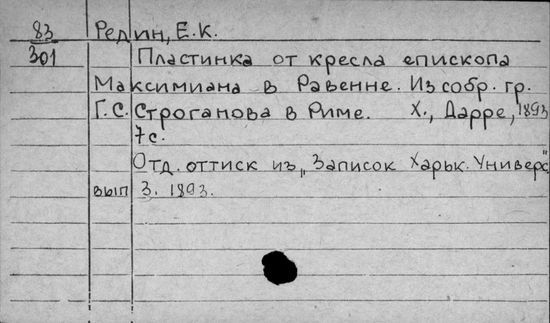 83 Редин, Е.К.
301 Пластинка от кресла епископа
Максимиана в Равенне. Из собр. гр.
Г.С. Строганова в Риме. Х., Дарре, 1893
7с.
Отд. оттиск из „Записок Харьк. Универс.
вып 3. 1893.